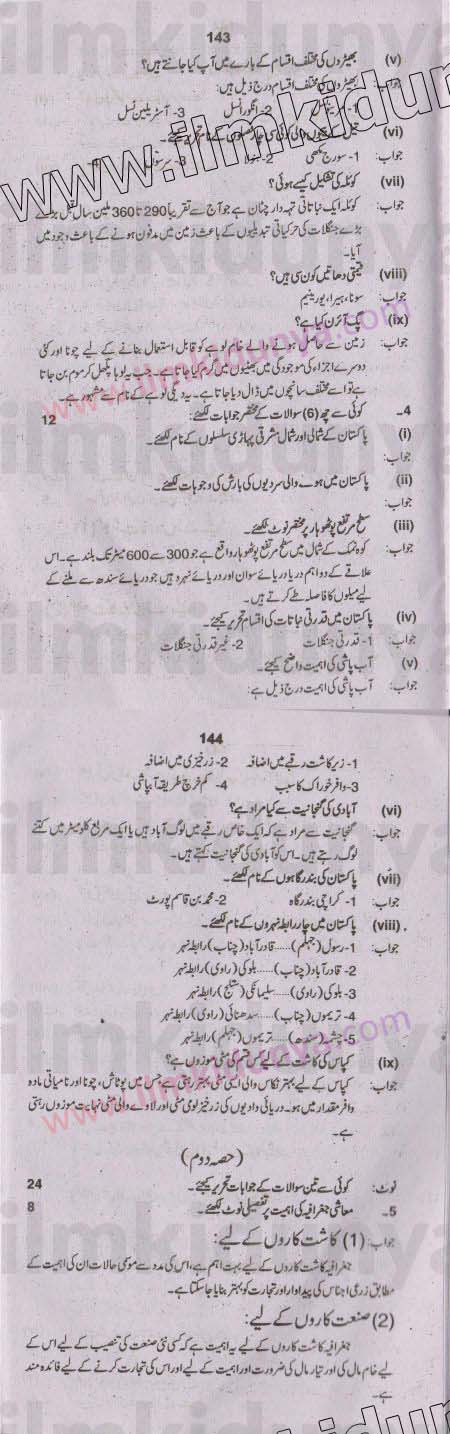 143
(v) بھیڑوں کی مختلف اقسام کے بارے میں آپ کیا جانتے ہیں؟
جواب: بھیڑوں کی مختلف اقسام درج ذیل ہیں:
2- انگورا نسل 3- آسٹریلین نسل
(vi) کے نام تحریر کیجئے۔
جواب: 1- سورج مکھی 3- سرسوں 4-
(vii) کوئلہ کی تشکیل کیسے ہوئی؟
جواب: کوئلہ ایک نباتاتی تہہ دار چٹان ہے جو آج سے تقریباً 290 تا 360 ملین سال قبل بڑے
بڑے جنگلات کی حرکیاتی تبدیلیوں کے باعث زمین میں مدفون ہونے کے باعث وجود میں
آیا۔
(viii) قیمتی دھاتیں کون سی ہیں؟
جواب: سونا، ہیرا، یورینیم
(ix) پگ آئرن کیا ہے؟
جواب: زمین سے حاصل ہونے والے خام لوہے کو قابل استعمال بنانے کے لیے چونا اور کئی
دوسرے اجزاء کی موجودگی میں بھٹیوں میں گرم کیا جاتا ہے۔ جب یہ لوہا پگھل کر موم بن جاتا
ہے تو اسے مختلف سانچوں میں ڈال دیا جاتا ہے۔ یہ دیگی لوہے کے نام سے مشہور ہے۔
4- کوئی سے چھ (6) سوالات کے مختصر جوابات لکھئے: 12
(i) پاکستان کے شمالی اور شمال مشرقی پہاڑی سلسلوں کے نام لکھئے۔
جواب:
(ii) پاکستان میں ہونے والی سردیوں کی بارش کی وجوہات لکھئے۔
جواب:
(iii) سطح مرتفع پوٹھوہار پر مختصر نوٹ لکھئے۔
جواب: کوہ نمک کے شمال میں سطح مرتفع پوٹھوہار واقع ہے جو 300 سے 600 میٹر تک بلند ہے۔ اس
علاقے کے دو اہم دریا دریائے سوان اور دریائے ہرو ہیں جو دریائے سندھ سے ملنے کے
لیے میلوں کا فاصلہ طے کرتے ہیں۔
(iv) پاکستان میں قدرتی نباتات کی اقسام تحریر کیجئے۔
جواب: 1- قدرتی جنگلات 2- غیر قدرتی جنگلات
(v) آب پاشی کی اہمیت واضح کیجئے۔
جواب: آب پاشی کی اہمیت درج ذیل ہے:
144
1- زیر کاشت رقبے میں اضافہ 2- زرخیزی میں اضافہ
3- وافر خوراک کا سبب 4- کم خرچ طریقہ آبپاشی
(vi) آبادی کی گنجانیت سے کیا مراد ہے؟
جواب: گنجانیت سے مراد ہے کہ ایک خاص رقبے میں لوگ آباد ہیں یا ایک مربع کلومیٹر میں کتنے
لوگ رہتے ہیں۔ اس کو آبادی کی گنجانیت کہتے ہیں۔
(vii) پاکستان کی بندرگاہوں کے نام لکھئے۔
جواب: 1- کراچی بندرگاہ 2- محمد بن قاسم پورٹ
(viii) پاکستان میں چار رابطہ نہروں کے نام لکھئے۔
جواب: 1- رسول (جہلم)..... قادر آباد (چناب) رابطہ نہر
2- قادر آباد (چناب)..... بلوکی (راوی) رابطہ نہر
3- بلوکی (راوی)..... سلیمانکی (ستلج) رابطہ نہر
4- تریموں (چناب)..... سدھنائی (راوی) رابطہ نہر
5- چشمہ (سندھ)..... تریموں (جہلم) رابطہ نہر
(ix) کپاس کی کاشت کے لیے کس قسم کی مٹی موزوں ہے؟
جواب: کپاس کے لیے بہتر نکاس والی ایسی مٹی بہتر رہتی ہے جس میں پوٹاش، چونا اور نامیاتی مادہ
وافر مقدار میں ہو۔ دریائی وادیوں کی زرخیز لومی مٹی اور لاوے والی مٹی نہایت موزوں رہتی
ہے۔
(حصہ دوم)
نوٹ: کوئی سے تین سوالات کے جوابات تحریر کیجئے۔ 24
5- معاشی جغرافیہ کی اہمیت پر تفصیلی نوٹ لکھئے۔ 8
جواب: (1) کاشت کاروں کے لیے:
جغرافیہ کاشت کاروں کے لیے بہت اہم ہے، اس کی مدد سے موسمی حالات ان کی اہمیت کے
مطابق زرعی اجناس کی پیداوار اور تجارت کو بہتر بنایا جا سکتا ہے۔
(2) صنعت کاروں کے لیے:
جغرافیہ کاشت کاروں کے لیے یہ اہمیت ہے کہ کسی نئی صنعت کی تنصیب کے لیے اس کے
لیے خام مال کی اور تیار مال کی ضرورت اور اہمیت کے لیے اور اس کی تجارت کرنے کے لیے فائدہ مند
ہے۔
www.ilmkidunya.com